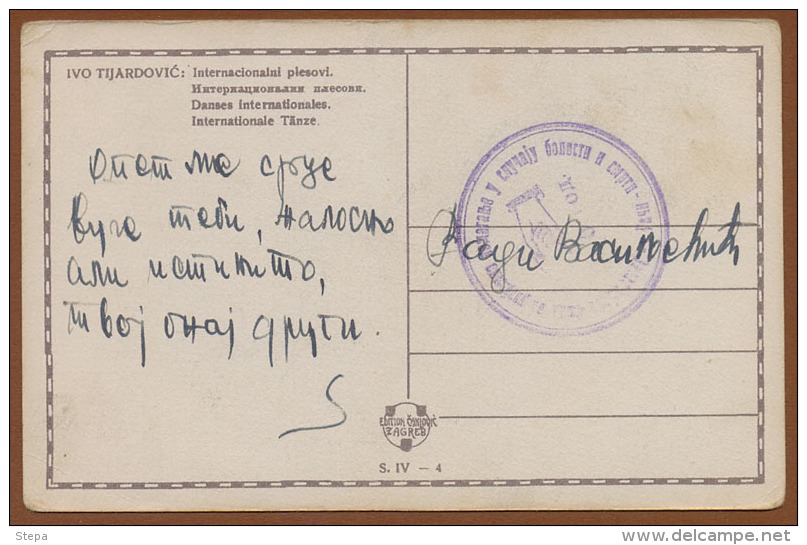 IVO TIJARDOVIĆ: Internacionalni plesovi.
Интернационални плесови.
Danses internationales.
Internationale Tänze.
опет ме срце
вуче теби, жалосно
али истинито,
твој онај други.
S
у случају болести и смрти
EDITION ČAKLOVIĆ
ZAGREB
S. IV — 4
Stepa
delcampe.net